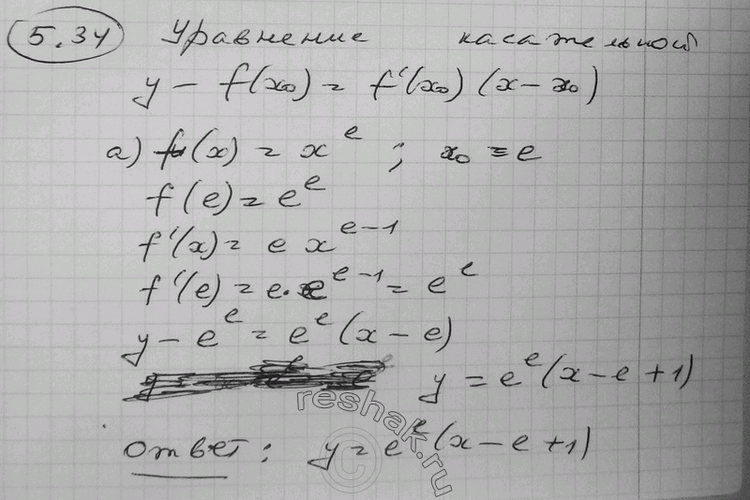 5.34 Уравнение касательной
y - f(x₀) = f'(x₀) (x - x₀)
а) f(x) = x^e ; x₀ = e
f(e) = e^e
f'(x) = e x^{e-1}
f'(e) = e · e^{e-1} = e^e
y - e^e = e^e (x - e)
y = e^e (x - e + 1)
Ответ: y = e^e (x - e + 1)
reshak.ru
©